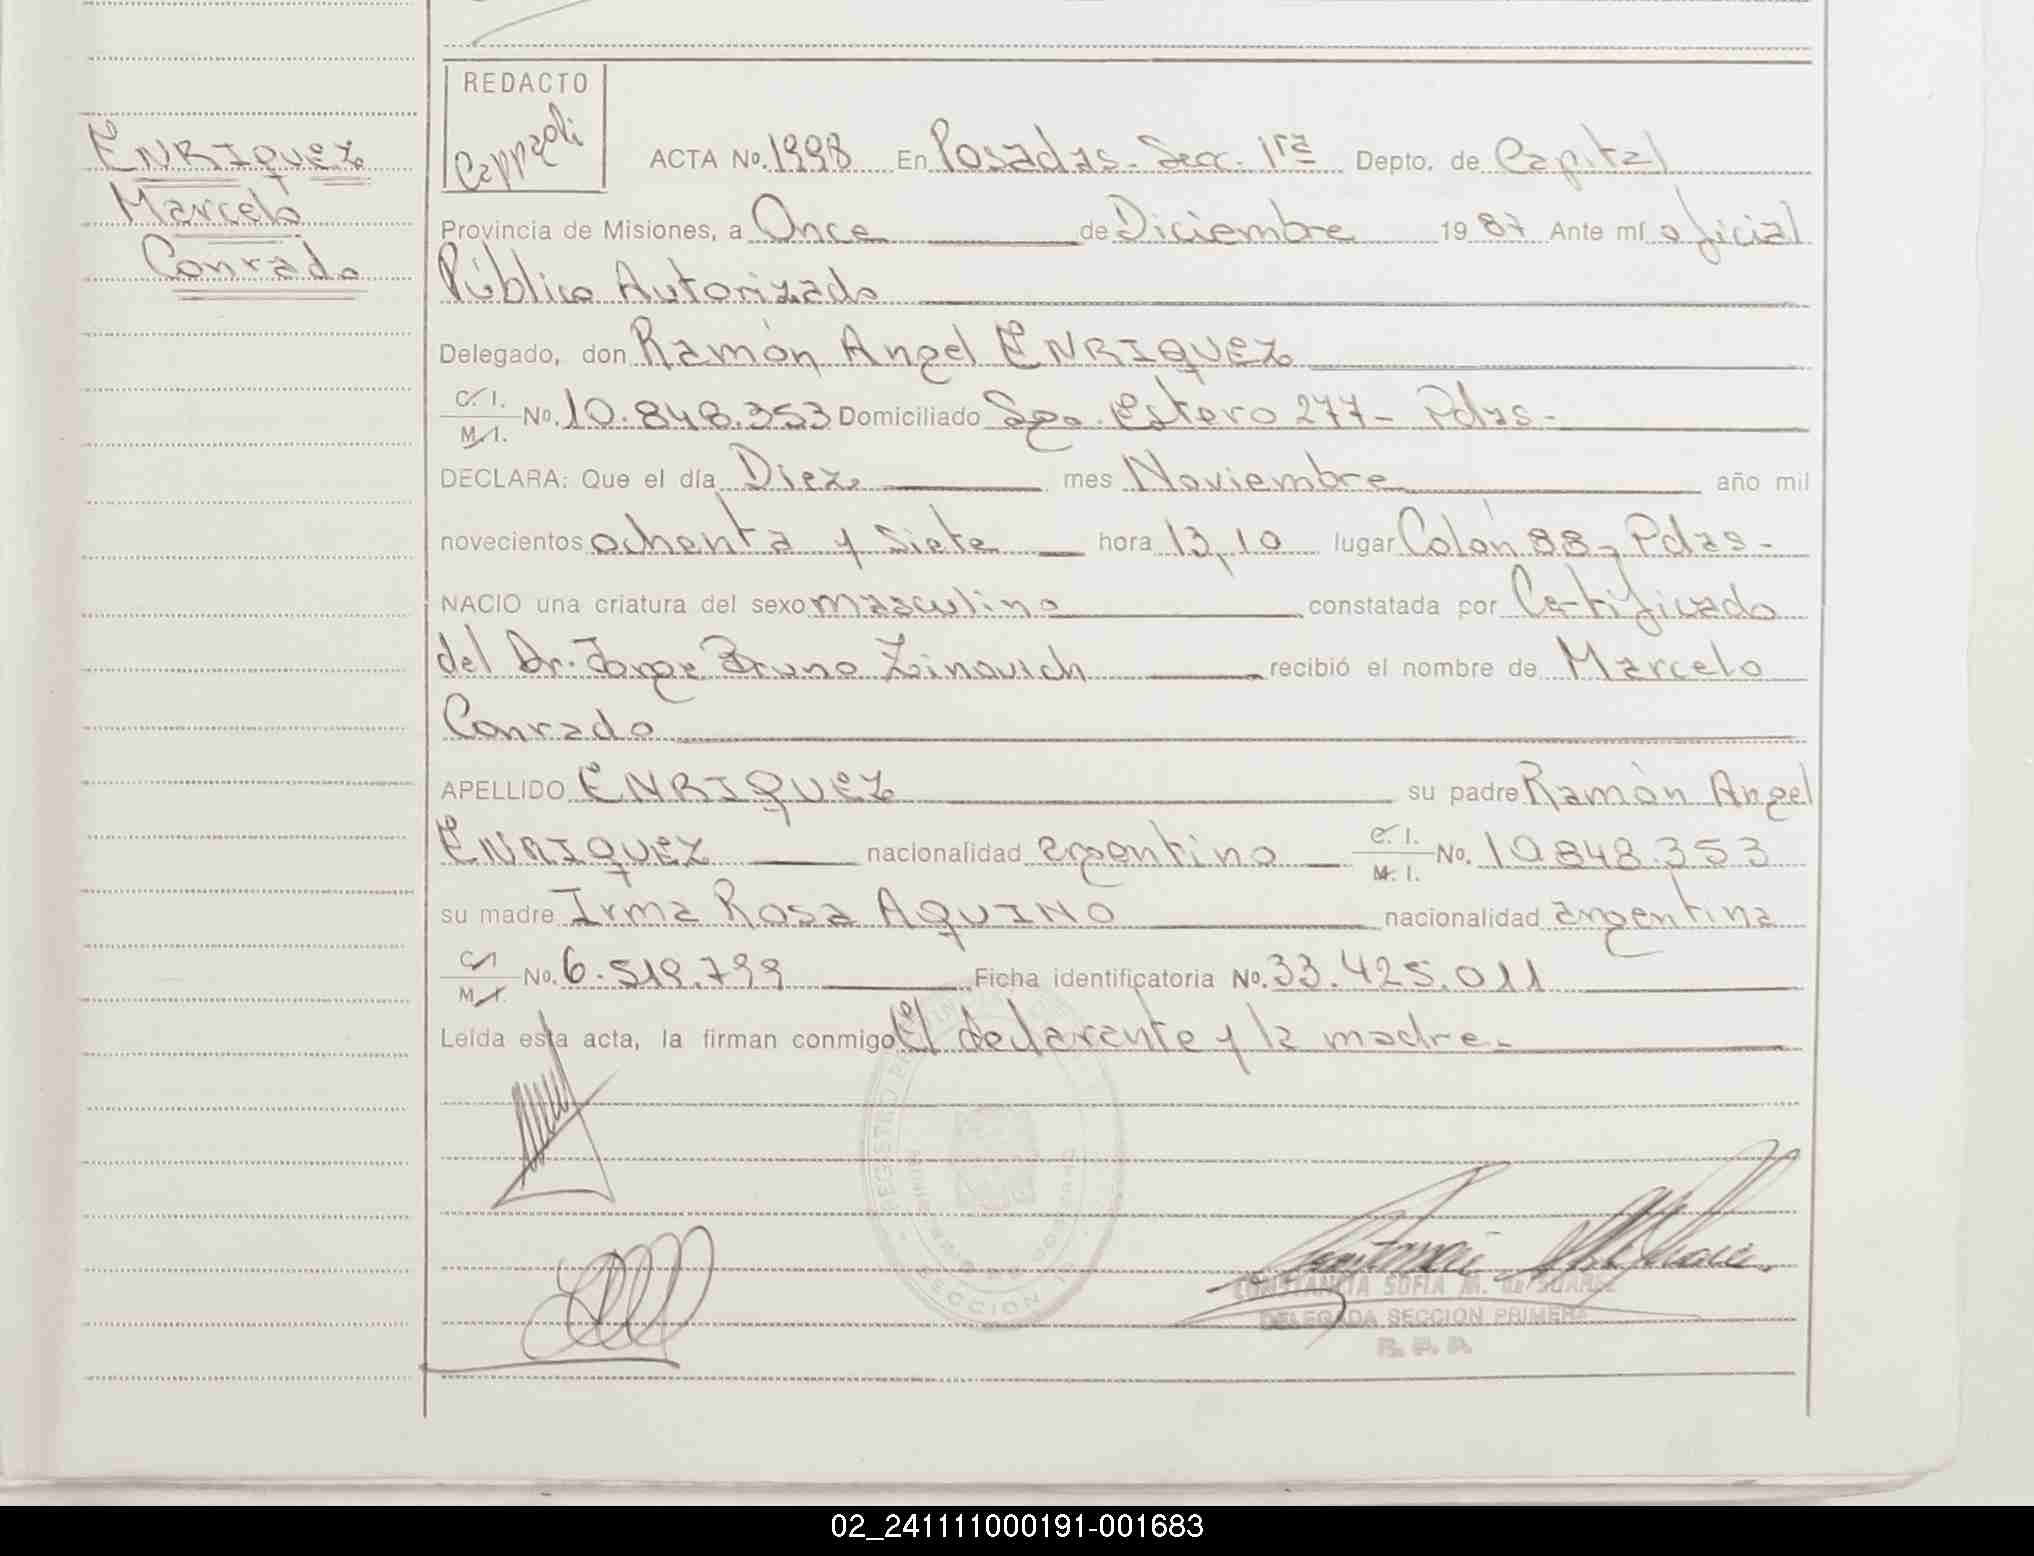 ENRIQUEZ
Marcelo
Conrado
REDACTO
Cappzoli
ACTA No. 1998 En Posadas - Secc. 1ra Depto. de Capital
Provincia de Misiones, a Once de Diciembre 19 87 Ante mí oficial
Público Autorizado
Delegado, don Ramón Angel ENRIQUEZ
C. I.
M. I. No. 10.848.353 Domiciliado Sgo. Estero 277 - Pdas -
DECLARA: Que el día Diez mes Noviembre año mil
novecientos ochenta y siete hora 13,10 lugar Colón 88, Pdas -
NACIO una criatura del sexo masculino constatada por Certificado
del Dr. Jorge Bruno Zinovich recibió el nombre de Marcelo
Conrado
APELLIDO ENRIQUEZ su padre Ramón Angel
ENRIQUEZ nacionalidad argentino C. I.
M. I. No. 10.848.353
su madre Irma Rosa AQUINO nacionalidad argentina
C. I.
M. I. No. 6.519.799 Ficha identificatoria No. 33.425.011
Leída esta acta, la firman conmigo El declarante y la madre -
REGISTRO
SECCION 1ª
CONSTANCIA SOFIA M. de SUAREZ
DELEGADA SECCION PRIMERA
R. P. P.
02_241111000191-001683